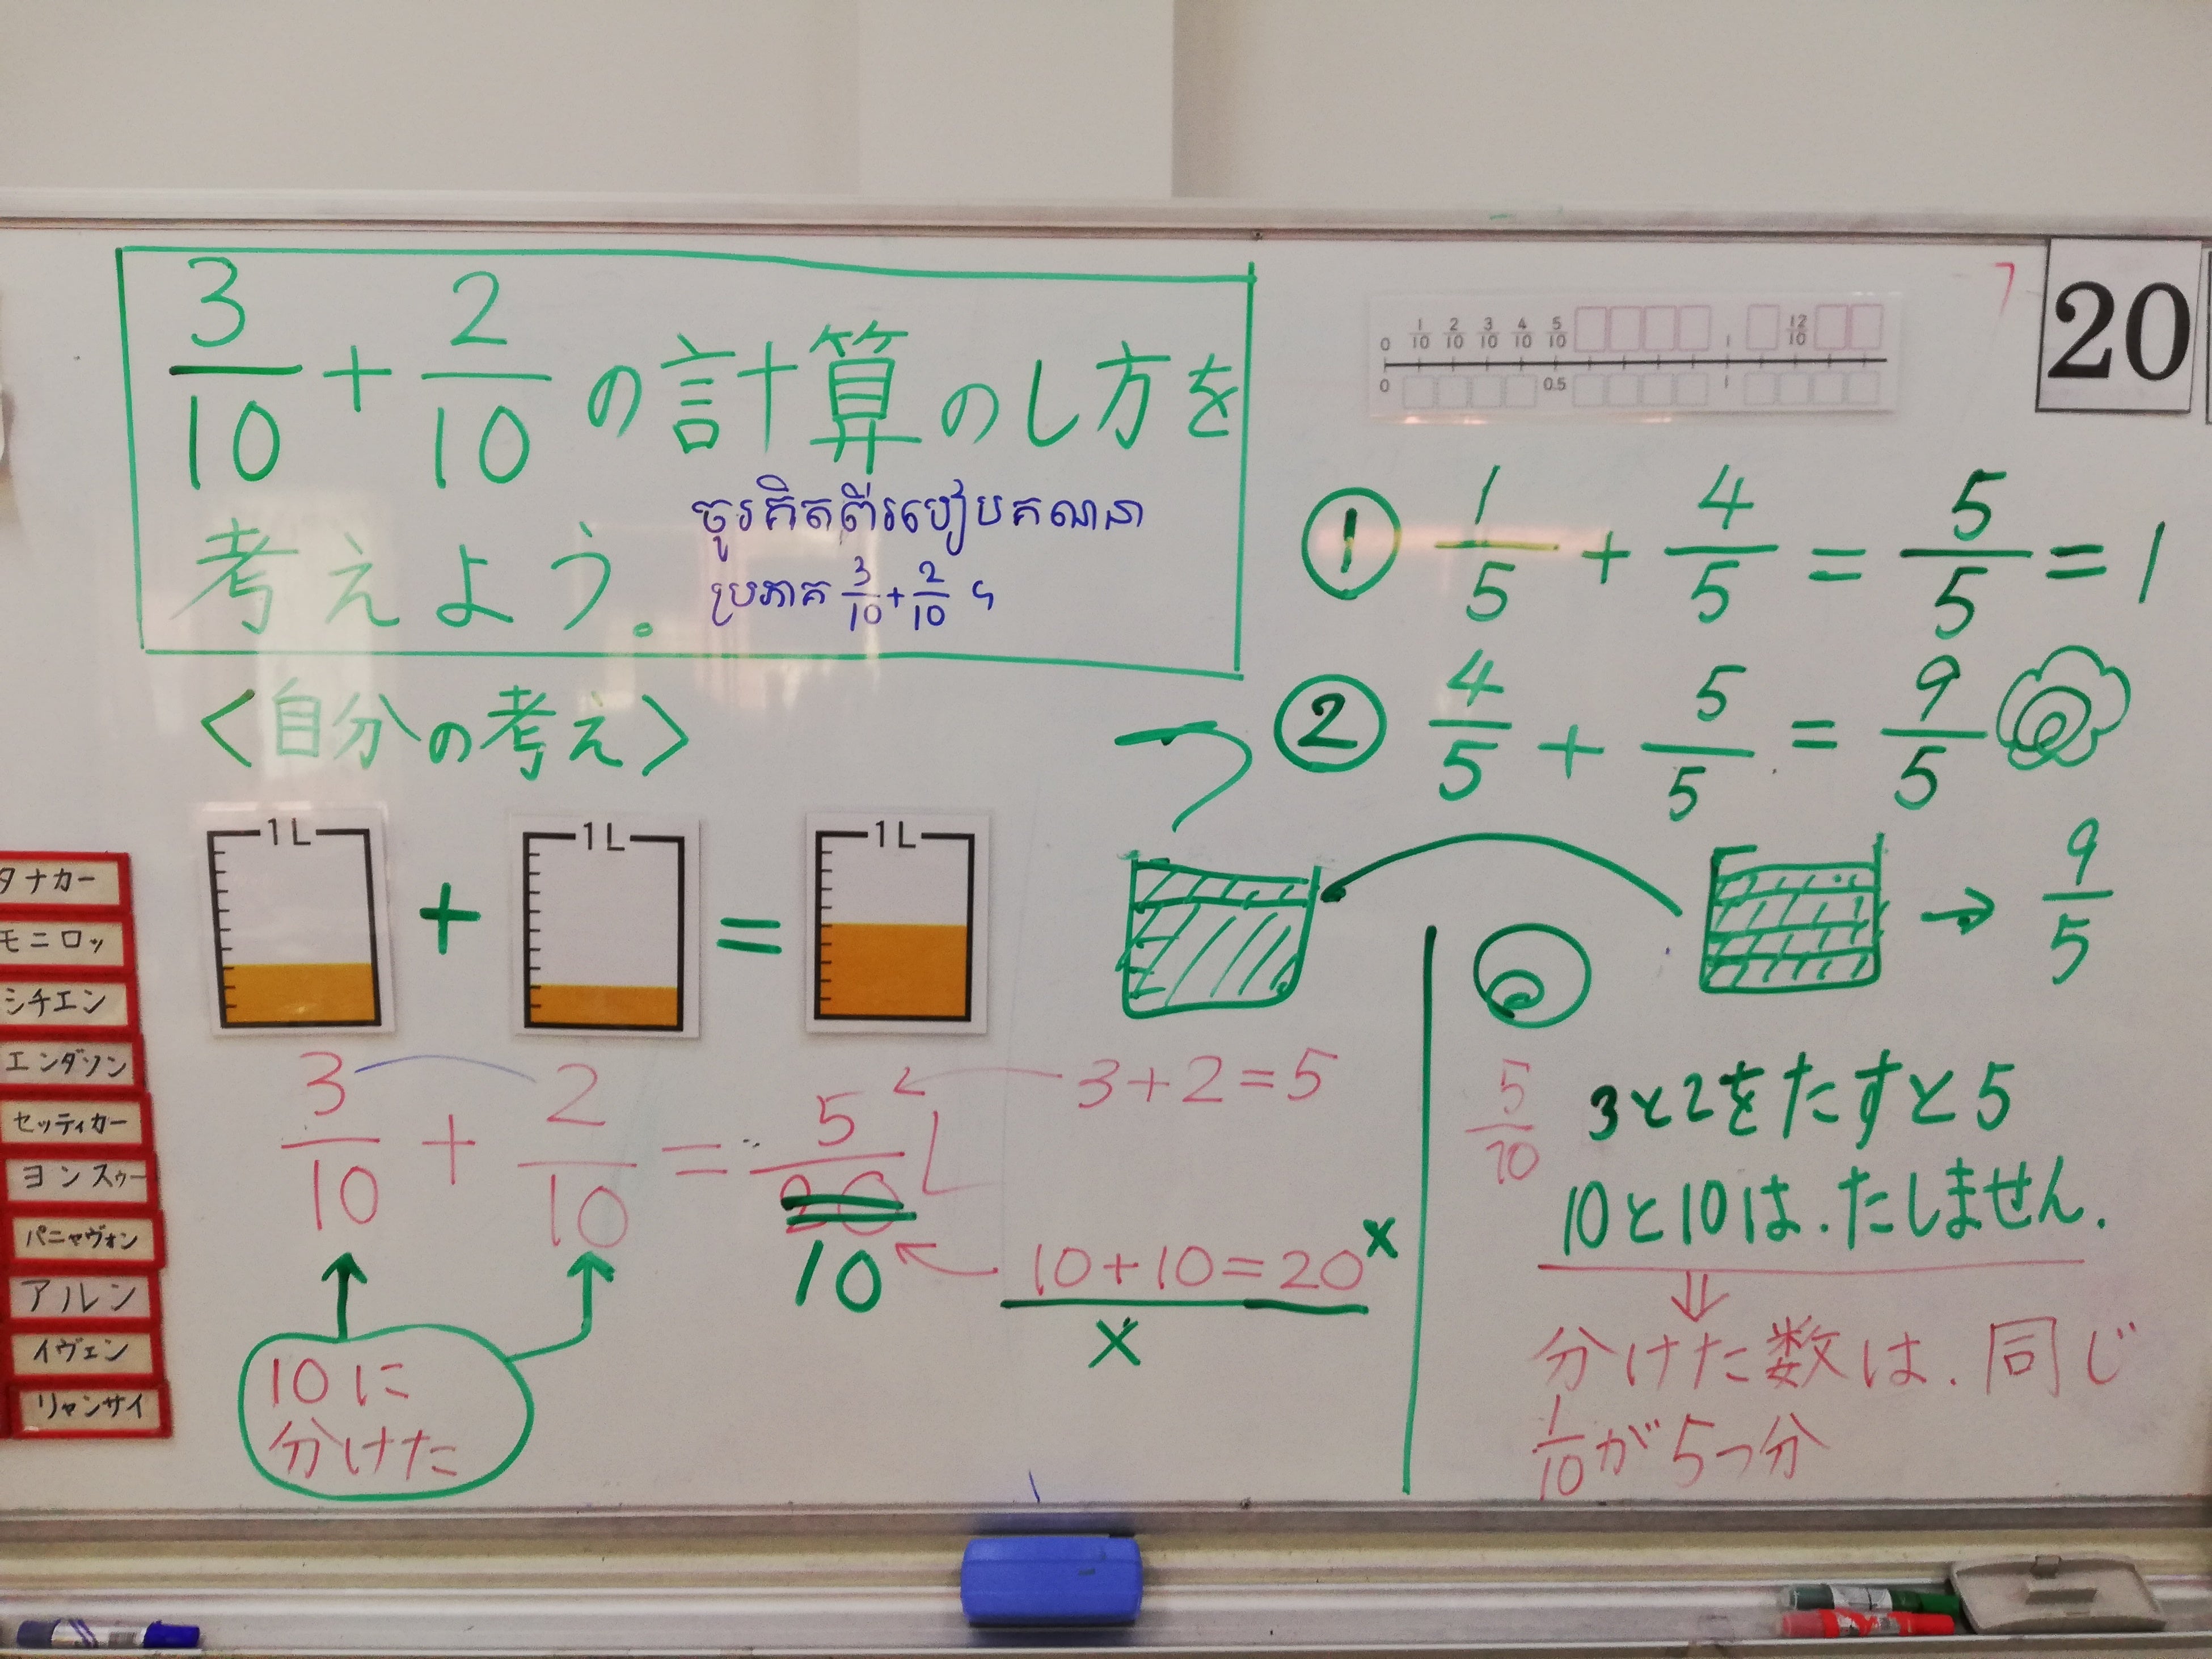 3/10 + 2/10 の計算のし方を
考えよう。
ចូរគិតពីរបៀបគណនា
ប្រភាគ 3/10 + 2/10 ។
〈自分の考え〉
1L + 1L = 1L
3/10 + 2/10 = 5/20
10
3+2=5
10+10=20 x
x
10に
分けた
タナカー
モニロッ
シチエン
エンダソン
セッティカー
ヨンスゥー
パニャヴォン
アルン
イヴェン
リャンサイ
0 1/10 2/10 3/10 4/10 5/10 1 12/10
0 0.5 1
20
① 1/5 + 4/5 = 5/5 = 1
② 4/5 + 5/5 = 9/5
→ 9/5
5/10
3と2をたすと5
10と10は.たしません.
⇓
分けた数は.同じ
1/10が5つ分